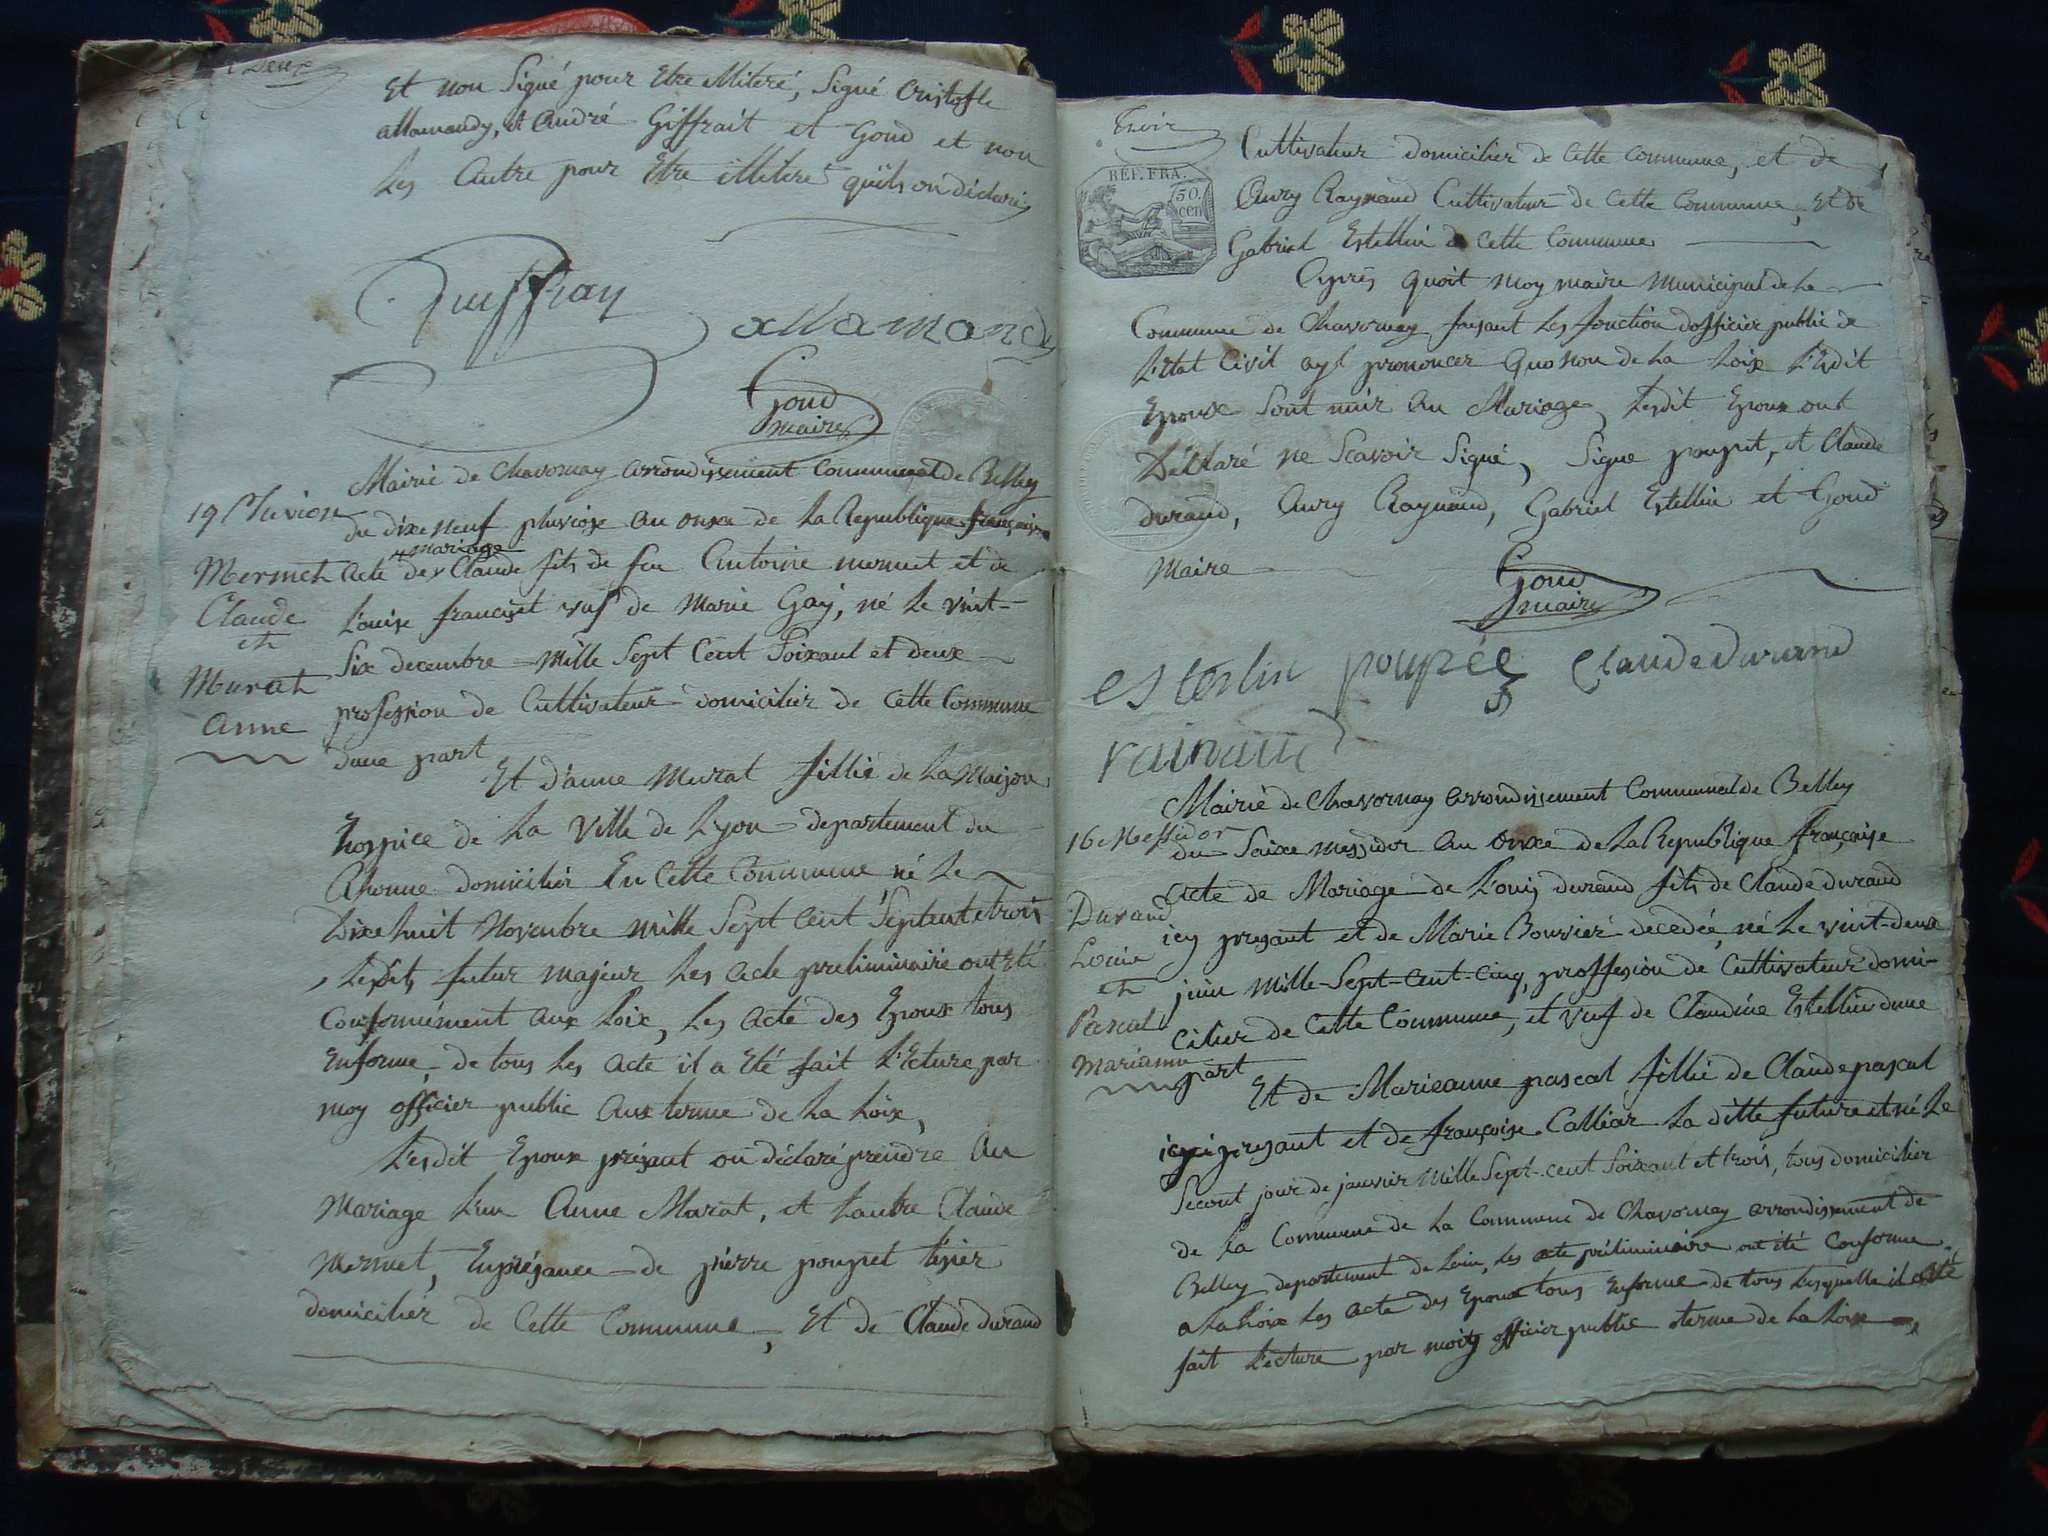 Deux
Et non Signé pour Etre Miteré, Signé Cristofle
allamandy, et André Giffrait et Goud et non
Les Autre pour Etre illiteré quils on déclaré
Guiffray
allamand
Goud
maire
Mairie de Chavornay arrondissement Communal de Belley
19 Pluviose
du dixe neuf pluviose an onze de la Republique française
mariage
Mermet
Acte de Claude fils de feu Antoine mermet et de
Claude
Louise françoiset vuf de Marie Gay, né le vint-
et
Six decembre mille Sept Cent Soixant et deux
Murat
profession de Cultivateur domicilier de Cette Commune
Anne
dune part
Et d'anne Murat fillie de la Maison
hospice de la Ville de Lyon departement du
Rhonne domicilier En Cette Commune né le
Dixe huit Novembre mille Sept Cent Septente trois
Lesdits futur majeur Les acte preliminaire ont Eté
Conformément aux Loix, Les acte des Epoux tous
Enforme de tous Les acte il a Eté fait L'Ecture par
moy officier public aux terme de la Loix,
Lesdit Epoux présant on déclaré prendre En
Mariage Lun Anne Murat, et Lautre Claude
Mermet, Enprésance de pierre poupet
domicilier de Cette Commune, Et de Claude durand
Trois
REP. FRA.
50.
cen
Cultivateur domicilier de Cette Commune, et de
Aury Raynaud Cultivateur de Cette Commune, et de
Gabriel Estellin de Cette Commune
Après quoit moy maire municipal de la
Commune de Chavornay faisant Les fonction dofficier public de
L'Etat Civil ayt prononcer quonon de la Loix Lesdit
Epoux Sont unir en Mariage, Lesdit Epoux ont
Déclaré ne Scavoir Signé, Signe poupet, et Claude
durand, Aury Raynaud, Gabriel Estellin et Goud
Maire
Goud
maire
esterlin poupée Claude durand
rainaud
Mairie de Chavornay arrondissement Communal de Belley
16 Messidor
du Saixe messidor an onxe de la Republique française
Acte de Mariage de Louis durand fils de Claude durand
Durand
icy presant et de Marie Bouvier decedée, né le vint-deux
Louis
juin Mille-Sept-Cent-Cinq, proffession de Cultivateur domi-
et
Pascal
cilier de Cette Commune, et Vuf de Claudine Estellin dune
Marianne
part
Et de Marieanne pascal fillie de Claude pascal
icy presant et de françoise Calliar La ditte future et né le
Second jour de janvier Mille Sept-cent Soixant et trois, tous domicilier
de la Commune de la Commune de Chavornay arrondissement de
Belley departement de Lain, Les acte préliminaire ont été Conforme
a la Loix Les acte des Epoux tous Enforme de tous Lesquelle il a Eté
fait L'ecture par moy officier public aterme de la Loix